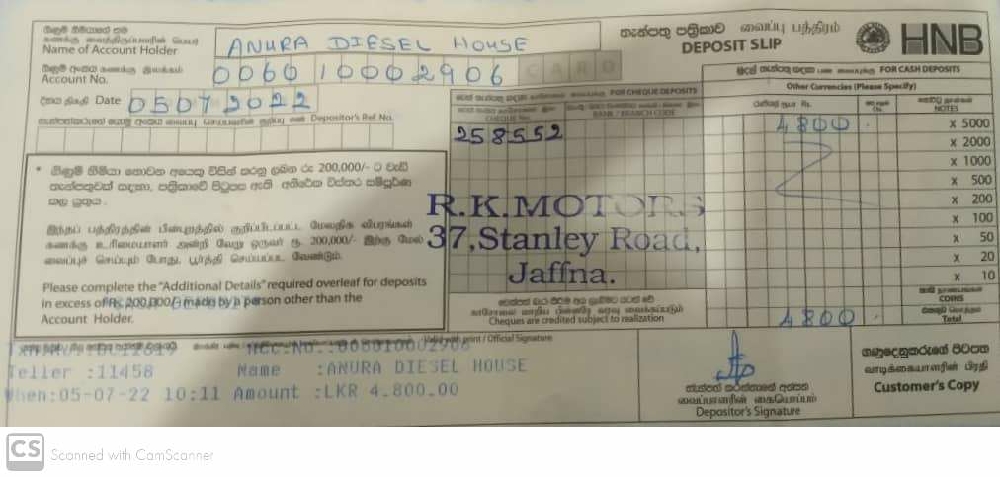 ගිණුම් හිමියාගේ නම
கணக்கு வைத்திருப்பவரின் பெயர்
Name of Account Holder
ANURA DIESEL HOUSE
තැන්පතු පත්‍රිකාව வைப்பு பத்திரம்
DEPOSIT SLIP
HNB
ගිණුම් අංකය கணக்கு இலக்கம்
Account No.
006010002906
CARD
දිනය திகதி Date 05072022
Depositor's Ref No.
FOR CHEQUE DEPOSITS
CHEQUE No. BANK / BRANCH CODE
258552
FOR CASH DEPOSITS
Other Currencies (Please Specify)
Rs.
NOTES
4800
x 5000
x 2000
x 1000
x 500
x 200
x 100
x 50
x 20
x 10
COINS
Total
4800
* ගිණුම් හිමියා නොවන අයෙකු විසින් කරනු ලබන රු 200,000/- ට වැඩි
තැන්පතුවක් සඳහා, පත්‍රිකාවේ පිටුපස ඇති අතිරේක විස්තර සම්පූර්ණ
කළ යුතුය.
இந்தப் பத்திரத்தின் பின்புறத்தில் குறிப்பிடப்பட்ட மேலதிக விபரங்கள்
கணக்கு உரிமையாளர் அன்றி வேறு ஒருவர் ரூ. 200,000/- இற்கு மேல்
வைப்புச் செய்யும் போது, பூர்த்தி செய்யப்பட வேண்டும்.
Please complete the "Additional Details" required overleaf for deposits
in excess of Rs. 200,000/- made by a person other than the
Account Holder.
R.K.MOTORS
37,Stanley Road,
Jaffna.
Cheques are credited subject to realization
print / Official Signature
Teller :11458 Name :ANURA DIESEL HOUSE
When:05-07-22 10:11 Amount :LKR 4.800.00
තැන්පත් කරන්නාගේ අත්සන
வைப்பாளரின் கையொப்பம்
Depositor's Signature
ගනුදෙනුකරුගේ පිටපත
வாடிக்கையாளரின் பிரதி
Customer's Copy
CS Scanned with CamScanner